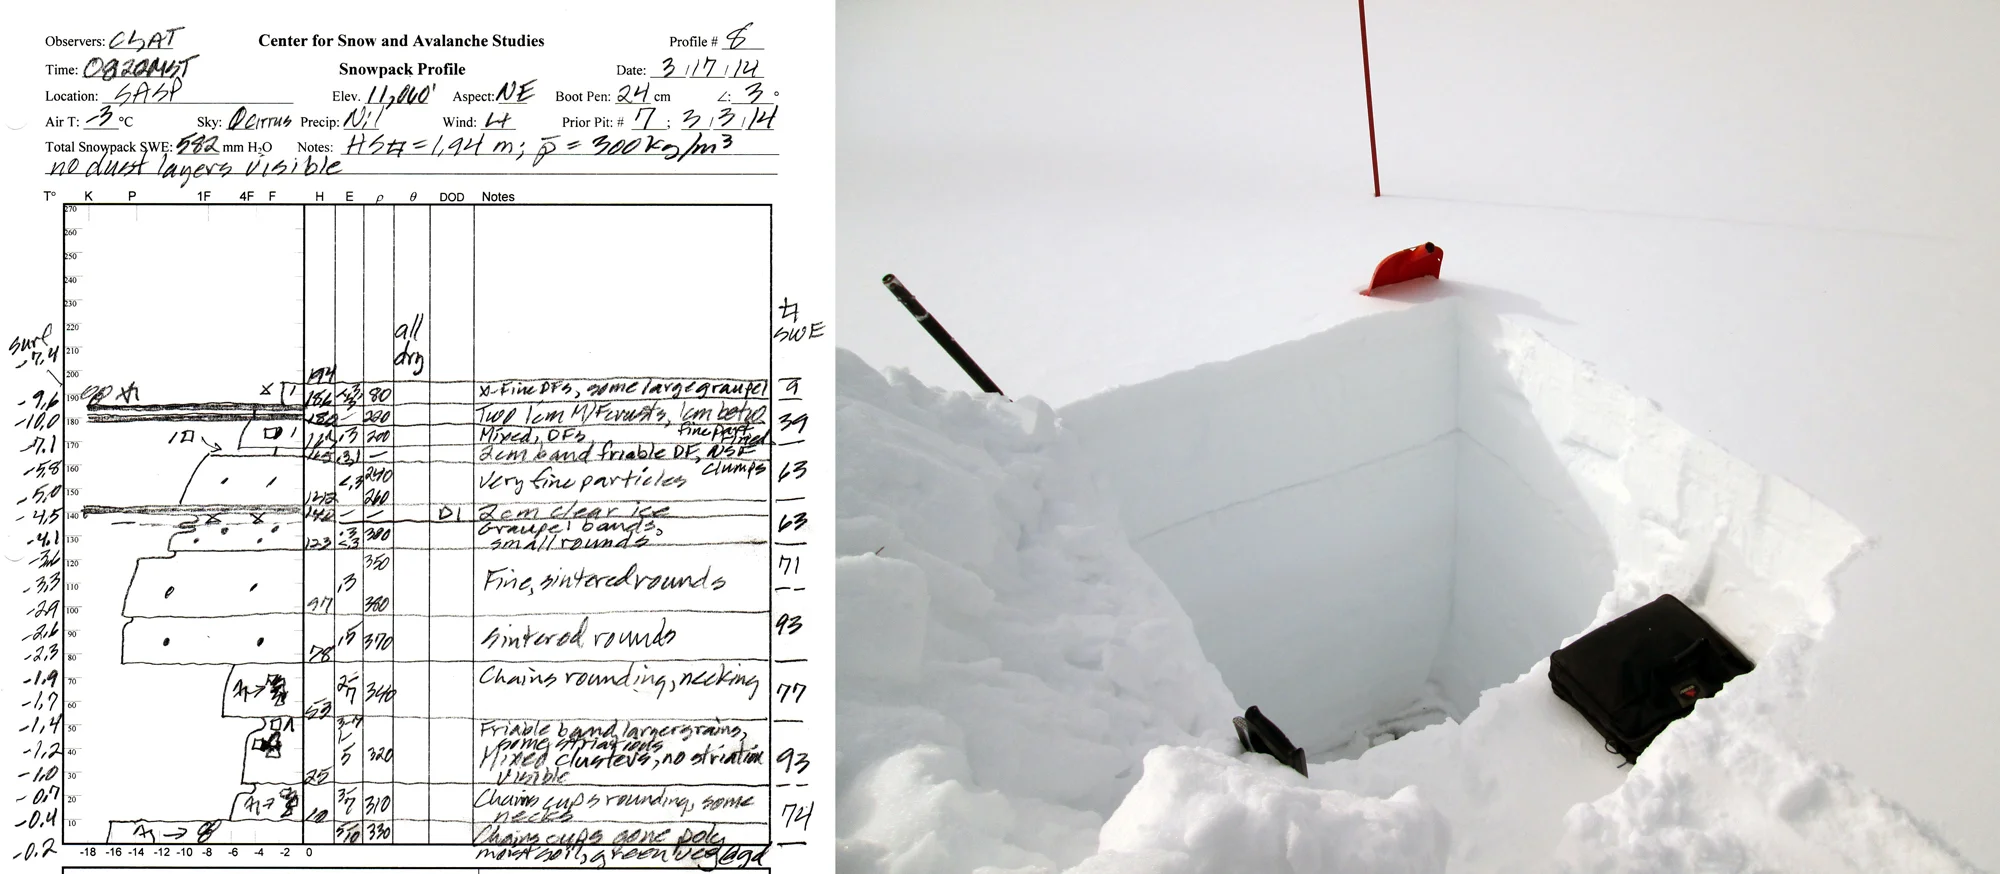 Observers: CSAT Center for Snow and Avalanche Studies Profile # 8
Time: 0820MST Snowpack Profile Date: 3/17/14
Location: SASP Elev. 11,060' Aspect: NE Boot Pen: 24 cm ∠: 3°
Air T: -3 °C Sky: Cirrus Precip: Nil Wind: Prior Pit: # 7 ; 3/3/14
Total Snowpack SWE: 582 mm H2O Notes: = 1.94 m; p̄ = 300 kg/m³
no dust layers visible
T° K P 1F 4F F H E ρ θ DOD Notes
270
260
250
240
230
220 all SWE
surf 210 dry
-7.4
200 194
-9.6 190 186 80 x-Fine DFs, some large graupel 9
-10.0 180 Two 1cm M/F crusts, 1cm betw. 39
-7.1 170 .3 200 Mixed, DFs
2cm band friable DF, NSF clumps
-5.8 160 <.3 240 Very fine particles 63
-5.0 150 260
-4.5 140 140 D1 2cm clear ice
Graupel bands, 63
-4.1 130 123 <.3 300 small rounds
120 350 71
-3.3 110 .3 Fine, sintered rounds
-2.9 100 97 380
-2.6 90 .5 370 sintered rounds 93
-2.3 80 78
-1.9 70 Chains rounding, necking
-1.7 60 53 340 77
-1.4 50 Friable band larger grains,
some striations
-1.2 40 5 320 Mixed clusters, no striation 93
-1.0 30 25 visible
-0.7 20 310 Chains cups rounding, some
-0.4 10 10 necks 74
330 Chains cups some poly
-0.2 moist soil, green veg @ gd
-18 -16 -14 -12 -10 -8 -6 -4 -2 0